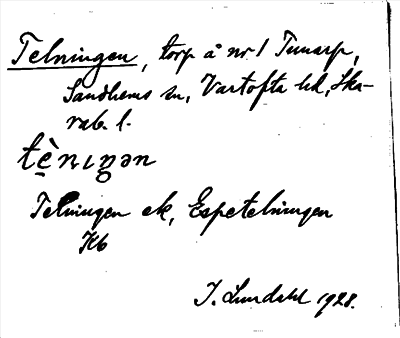 Telningen, torp å nr 1 Tunarp,
Sandhems sn, Vartofta hd, Ska-
rab. l.
tè̠nɩŋən
Telningen ek, Espetelningen
Kb
I. Lundahl 1928.